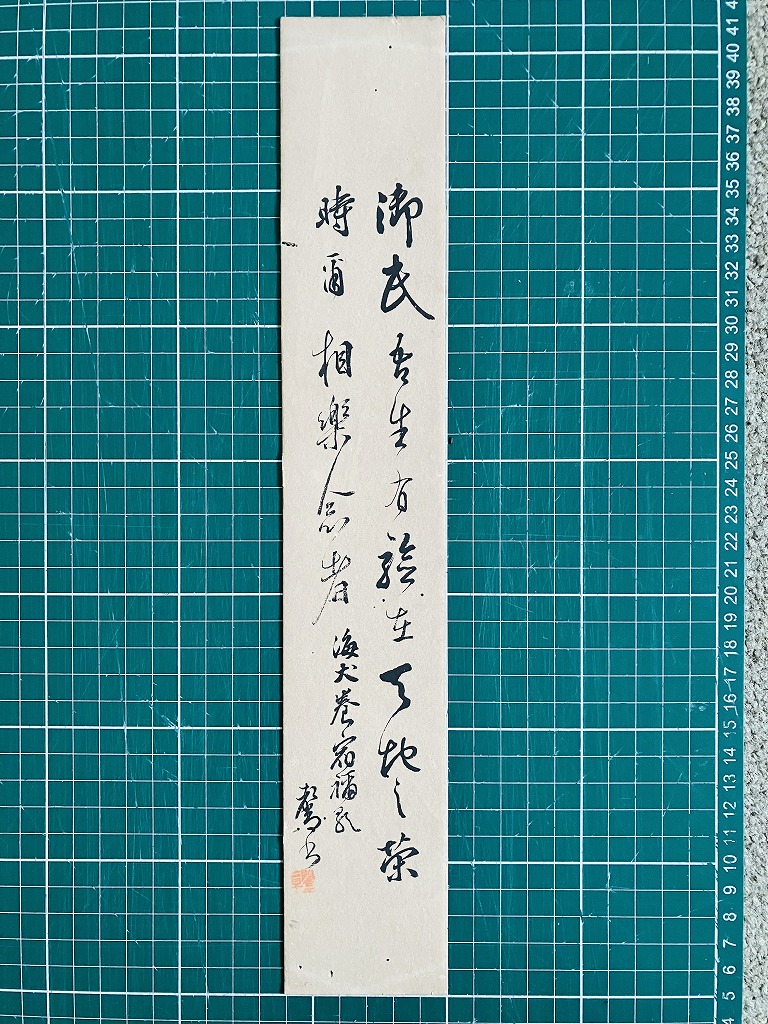 御民吾生有驗在天地之榮
時爾相樂念者
海犬養宿禰
書
41 40 39 38 37 36 35 34 33 32 31 30 29 28 27 26 25 24 23 22 21 20 19 18 17 16 15 14 13 12 11 10 9 8 7 6 5 4